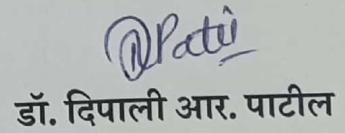 DPatil
डॉ. दिपाली आर. पाटील